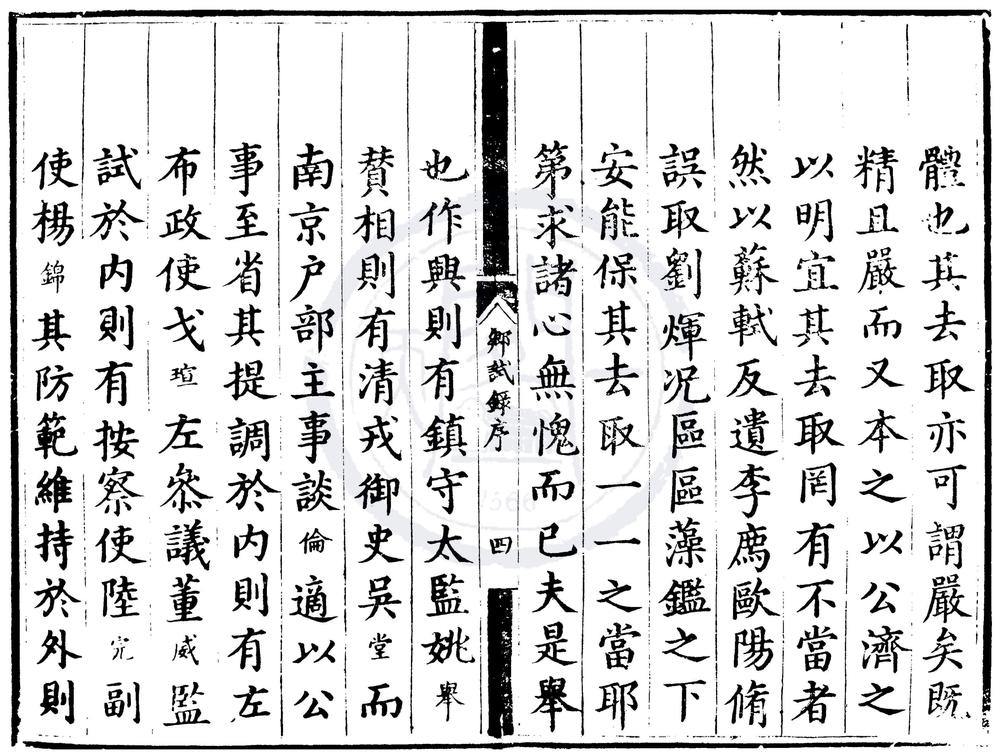 體也其去取亦可謂嚴矣既
精且嚴而又本之以公濟之
以明宜其去取罔有不當者
然以蘇軾反遺李廌歐陽脩
誤取劉煇况區區藻鑑之下
安能保其去取一一之當耶
第求諸心無愧而已夫是舉
鄉試録序
四
也作興則有鎮守太監姚舉
賛相則有清戎御史吳堂而
南京户部主事談倫適以公
事至省其提調於内則有左
布政使戈瑄左叅議董威監
試於内則有按察使陸完副
使楊錦其防範維持於外則